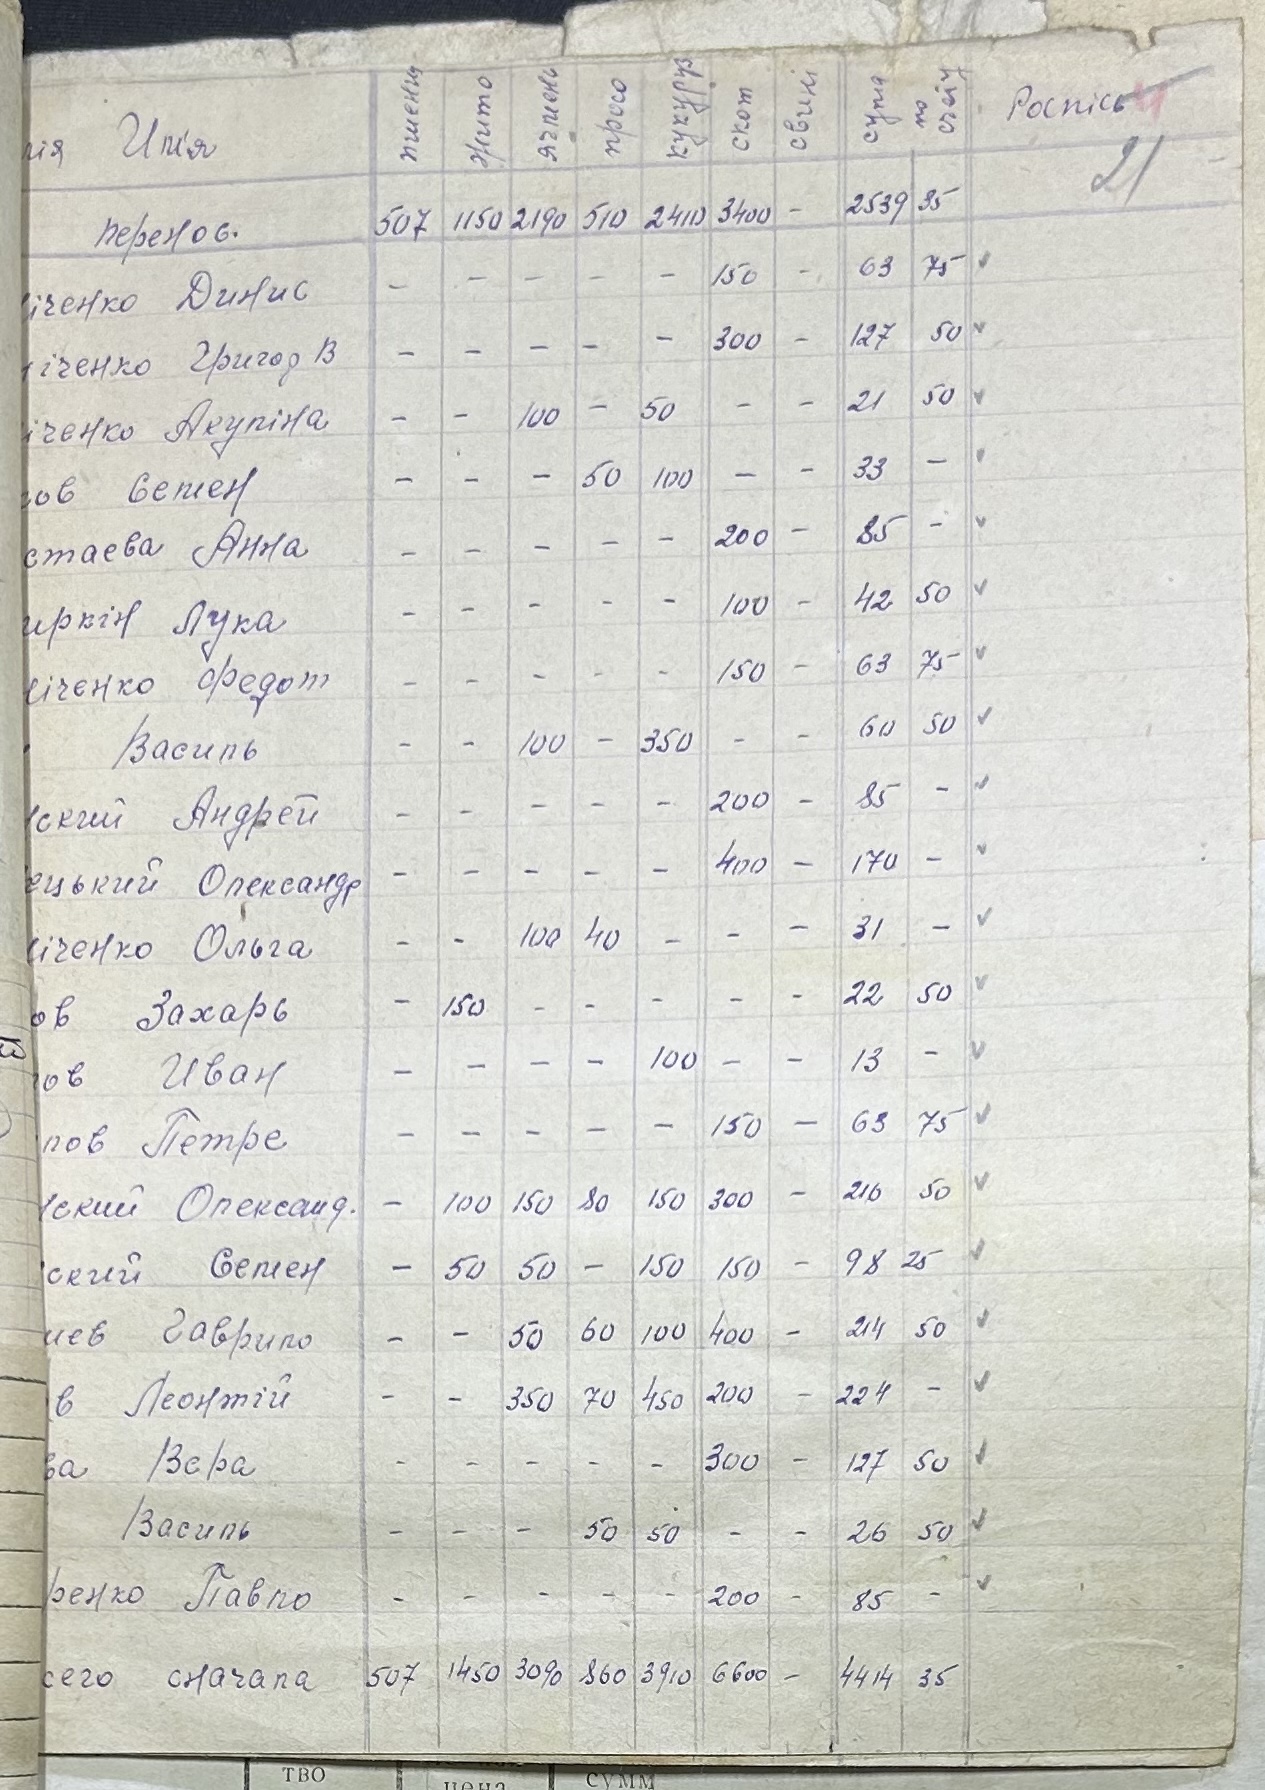 Имя пшениц жито ячмень просо кукуруз скот свині сума по счету Роспісь
21
перенос. 507 1150 2190 510 2410 3400 - 2539 35
іченко Динис - - - - - 150 - 63 75 ✓
іченко Григор В - - - - - 300 - 127 50 ✓
іченко Акуліна - - 100 - 50 - - 21 50 ✓
ов Семен - - - 50 100 - - 33 - ✓
стаева Анна - - - - - 200 - 85 - ✓
иркін Лука - - - - - 100 - 42 50 ✓
іченко Федот - - - - - 150 - 63 75 ✓
Василь - - 100 - 350 - - 60 50 ✓
ский Андрей - - - - - 200 - 85 - ✓
ецький Олександр - - - - - 400 - 170 - ✓
іченко Ольга - - 100 40 - - - 31 - ✓
ов Захарь - 150 - - - - - 22 50 ✓
ов Иван - - - - 100 - - 13 - ✓
пов Петре - - - - - 150 - 63 75 ✓
ский Олександ. - 100 150 80 150 300 - 216 50 ✓
ский Семен - 50 50 - 150 150 - 98 25 ✓
иев Гаврило - - 50 60 100 400 - 214 50 ✓
в Леонтій - - 350 70 450 200 - 224 - ✓
ва Вєра - - - - - 300 - 127 50 ✓
Василь - - - 50 50 - - 26 50 ✓
ренко Павло - - - - - 200 - 85 - ✓
сего сначала 507 1450 3090 860 3910 6600 - 4414 35
тво
цена
сумм